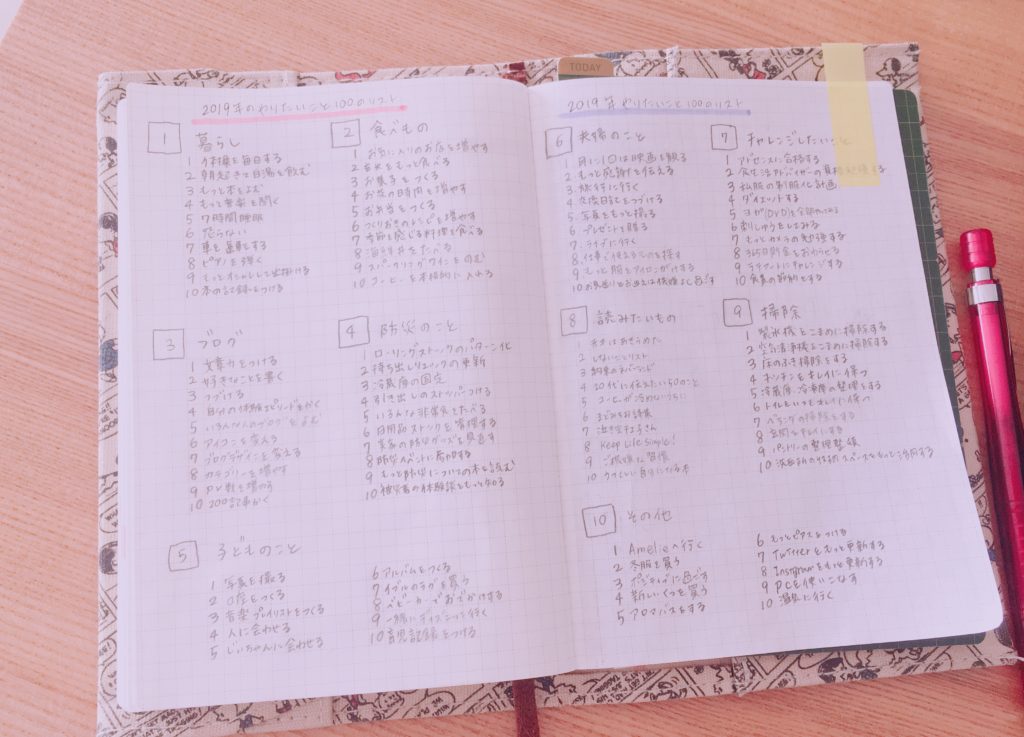 TODAY
2019年のやりたいこと100のリスト
1 暮らし
2 朝起きて白湯を飲む
3 もっと本をよむ
4 もっと音楽を聞く
5 7時間睡眠
6 怒らない
8 ピアノを弾く
9 もっとオシャレして出掛ける
10 本の記録をつける
2 食べもの
1 お気に入りのお店を増やす
2 玄米をもっと食べる
3 お菓子をつくる
4 お茶の時間を増やす
5 お弁当をつくる
6 つくりおきのレシピを増やす
7 季節を感じる料理を食べる
8 海鮮丼をたべる
9 スパークリングワインをのむ
10 コーヒーを本格的に入れる
3 ブログ
1 文章力をつける
2 好きなことを書く
3 つづける
4 自分の体験エピソードをかく
5 いろんな人のブログをよむ
6 アイコンを変える
7 ブログデザインを変える
8 カテゴリーを増やす
9 PV数を増やす
10 200記事かく
4 防災のこと
1 ローリングストックのパターン化
2 持ち出しリュックの更新
3 冷蔵庫の固定
4 引き出しのストッパーつける
5 いろんな非常食をたべる
6 日用品ストックを管理する
7 実家の防災グッズを見直す
8 防災イベントに参加する
9 もっと防災についての本を読む
10 被災者の体験談をもっと知る
5 子どものこと
1 写真を撮る
3 音楽プレイリストをつくる
4 人に会わせる
5 じいちゃんに会わせる
6 アルバムをつくる
7 イブルのラグを買う
8 ベビーカーでおでかけする
9 一緒にディズニーに行く
10 育児記録をつける
2019年やりたいこと100のリスト
6 夫婦のこと
1 月に1回は映画を観る
2 もっと感謝を伝える
3 旅行に行く
4 交換日記をつづける
5 写真をもっと撮る
6 プレゼントを贈る
7 ライブに行く
8 仕事で使えるものを探す
10 お見送りとお迎えは機嫌よく過ごす
7 チャレンジしたいこと
1 アドセンスに合格する
2 食生活アドバイザーの
3 私服の制服化計画
4 ダイエットする
6 刺しゅうをしてみる
7 もっとカメラの勉強する
8 365日貯金をおわらせる
10 食費の節約をする
8 読みたいもの
2 しないことリスト
3 約束のネバーランド
4 20代に伝えたい50のこと
5 コーヒーが冷めないうちに
8 Keep Life Simple!
9 ご機嫌な習慣
10 うつくしい自分になる本
9 掃除
1 製氷機をこまめに掃除する
2 空気清浄機をこまめに掃除する
3 床のふき掃除をする
4 キッチンをキレイに保つ
5 冷蔵庫・冷凍庫の整理をする
6 トイレをいつもキレイに保つ
7 ベランダの掃除をする
8 玄関をキレイにする
9 パントリーの整理整頓
10 洗面所の収納スペースをもっと活用する
10 その他
1 Amelieへ行く
2 冬服を買う
3 ポジティブに過ごす
4 新しいくつを買う
5 アロマバスをする
6 もっとピアスをつける
7 Twitterをもっと更新する
8 Instagramをもっと更新する
9 PCを使いこなす
10 温泉に行く